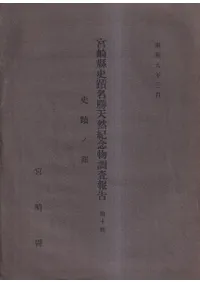 昭和九年三月
宮崎縣史蹟名勝天然紀念物調査報告
史蹟ノ部
宮崎縣